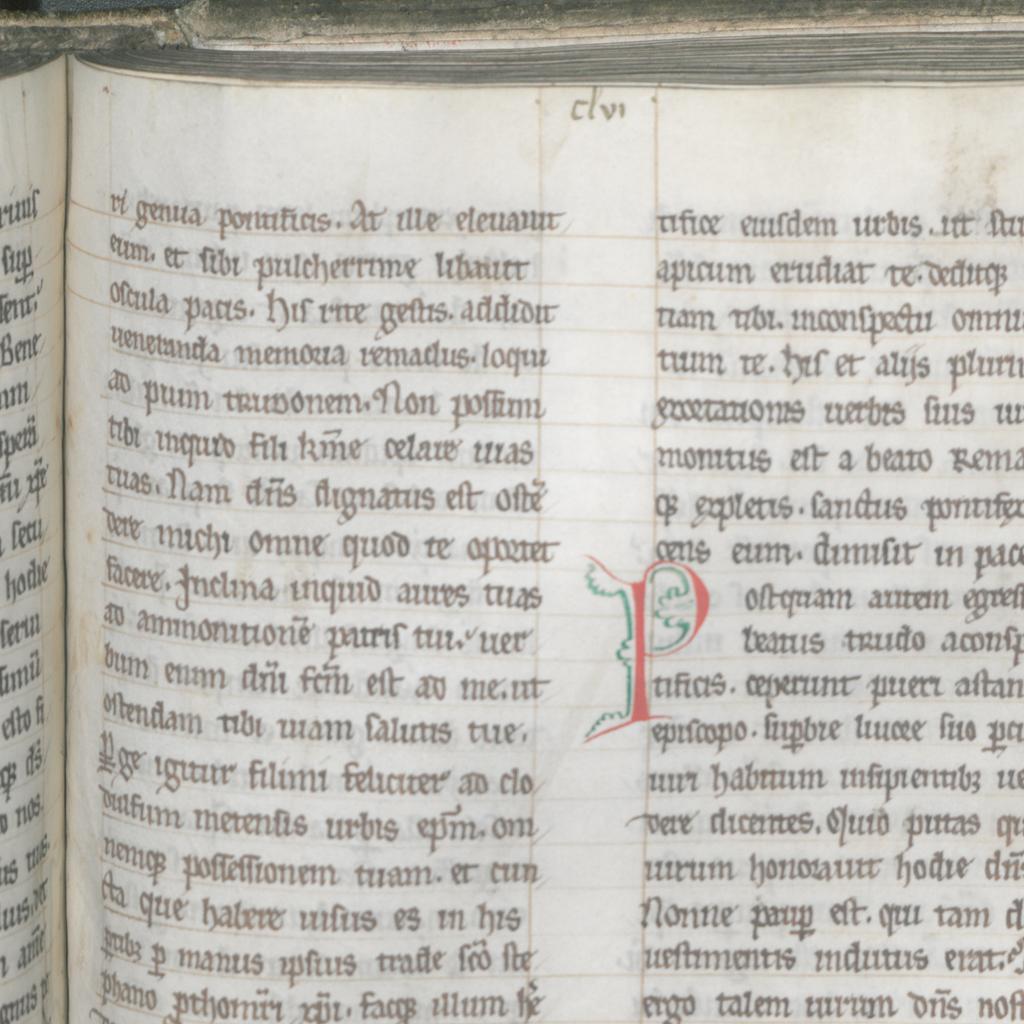 clvi
ri genua pontificis. At ille eleuauit
eum. et sibi pulcherrime libauit
oscula pacis. His rite gestis. addidit
ueneranda memoria remaclus. loqui
ad pium trudonem. Non possum
tibi inquid fili kr̄me celare uias
tuas. Nam dn̄s dignatus est ostē
dere michi omne quod te oportet
facere. Inclina inquid aures tuas
ad ammonitionē patris tui. uer
bum enim dn̄i fcm̄ est ad me. ut
ostendam tibi uiam salutis tue.
ꝑge igitur filimi feliciter ad clo
dulfum metensis urbis ep̄m. om
nemqꝫ possessionem tuam. et cun
cta que habere uisus es in his
ꝑ manus ipsius trade sc̄o ste
phano ꝓthom̄ri xp̄i. facqꝫ illum
tifice eiusdem urbis. ut
apicum erudiat te. deditqꝫ
tiam tibi. inconspectu
tuum te. his et alijs
uerbis suis
monitus est a beato
qꝫ expletis. sanctus
cens eum. dimisit in
Postquam autem
beatus trudo
tificis. ceperunt pueri
episcopo. suꝑbie liuore suo
uiri habitum insipientibꝫ
dere dicentes. Quid putas
uirum honorauit hodie dn̄s
Nonne pauꝑ est. qui tam
uestimentis indutus erat.
ergo talem uirum dn̄s